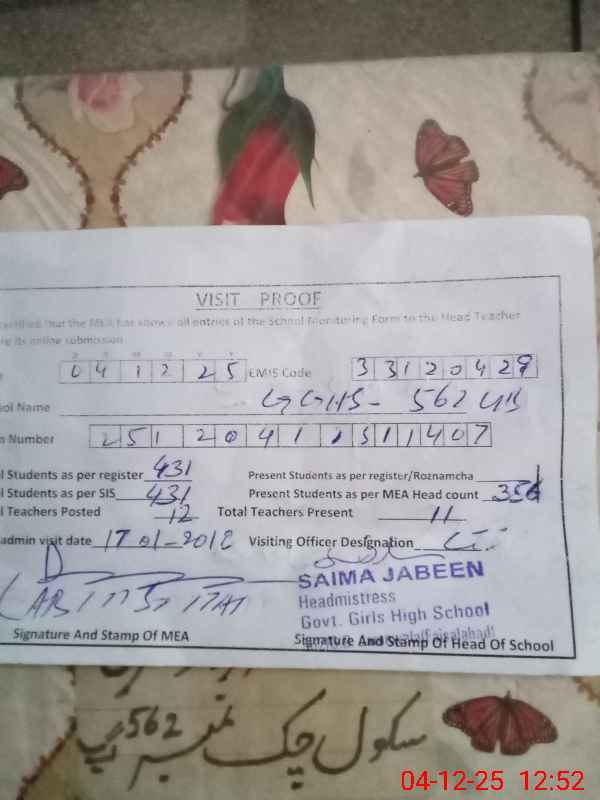 VISIT PROOF
certified that the MEA has shown all entries of the School Monitoring Form to the Head Teacher
its online submission
04 12 25 EMIS Code 33120429
ol Name GGHS- 562 GB
Number
l Students as per register 431 Present Students as per register/Roznamcha
l Students as per SIS 431 Present Students as per MEA Head count
l Teachers Posted 12 Total Teachers Present 11
admin visit date 17 01-2018 Visiting Officer Designation
SAIMA JABEEN
Headmistress
Govt. Girls High School
Signature And Stamp Of MEA Signature And Stamp Of Head Of School
سکول چک نمبر 562 گ ب
04-12-25 12:52